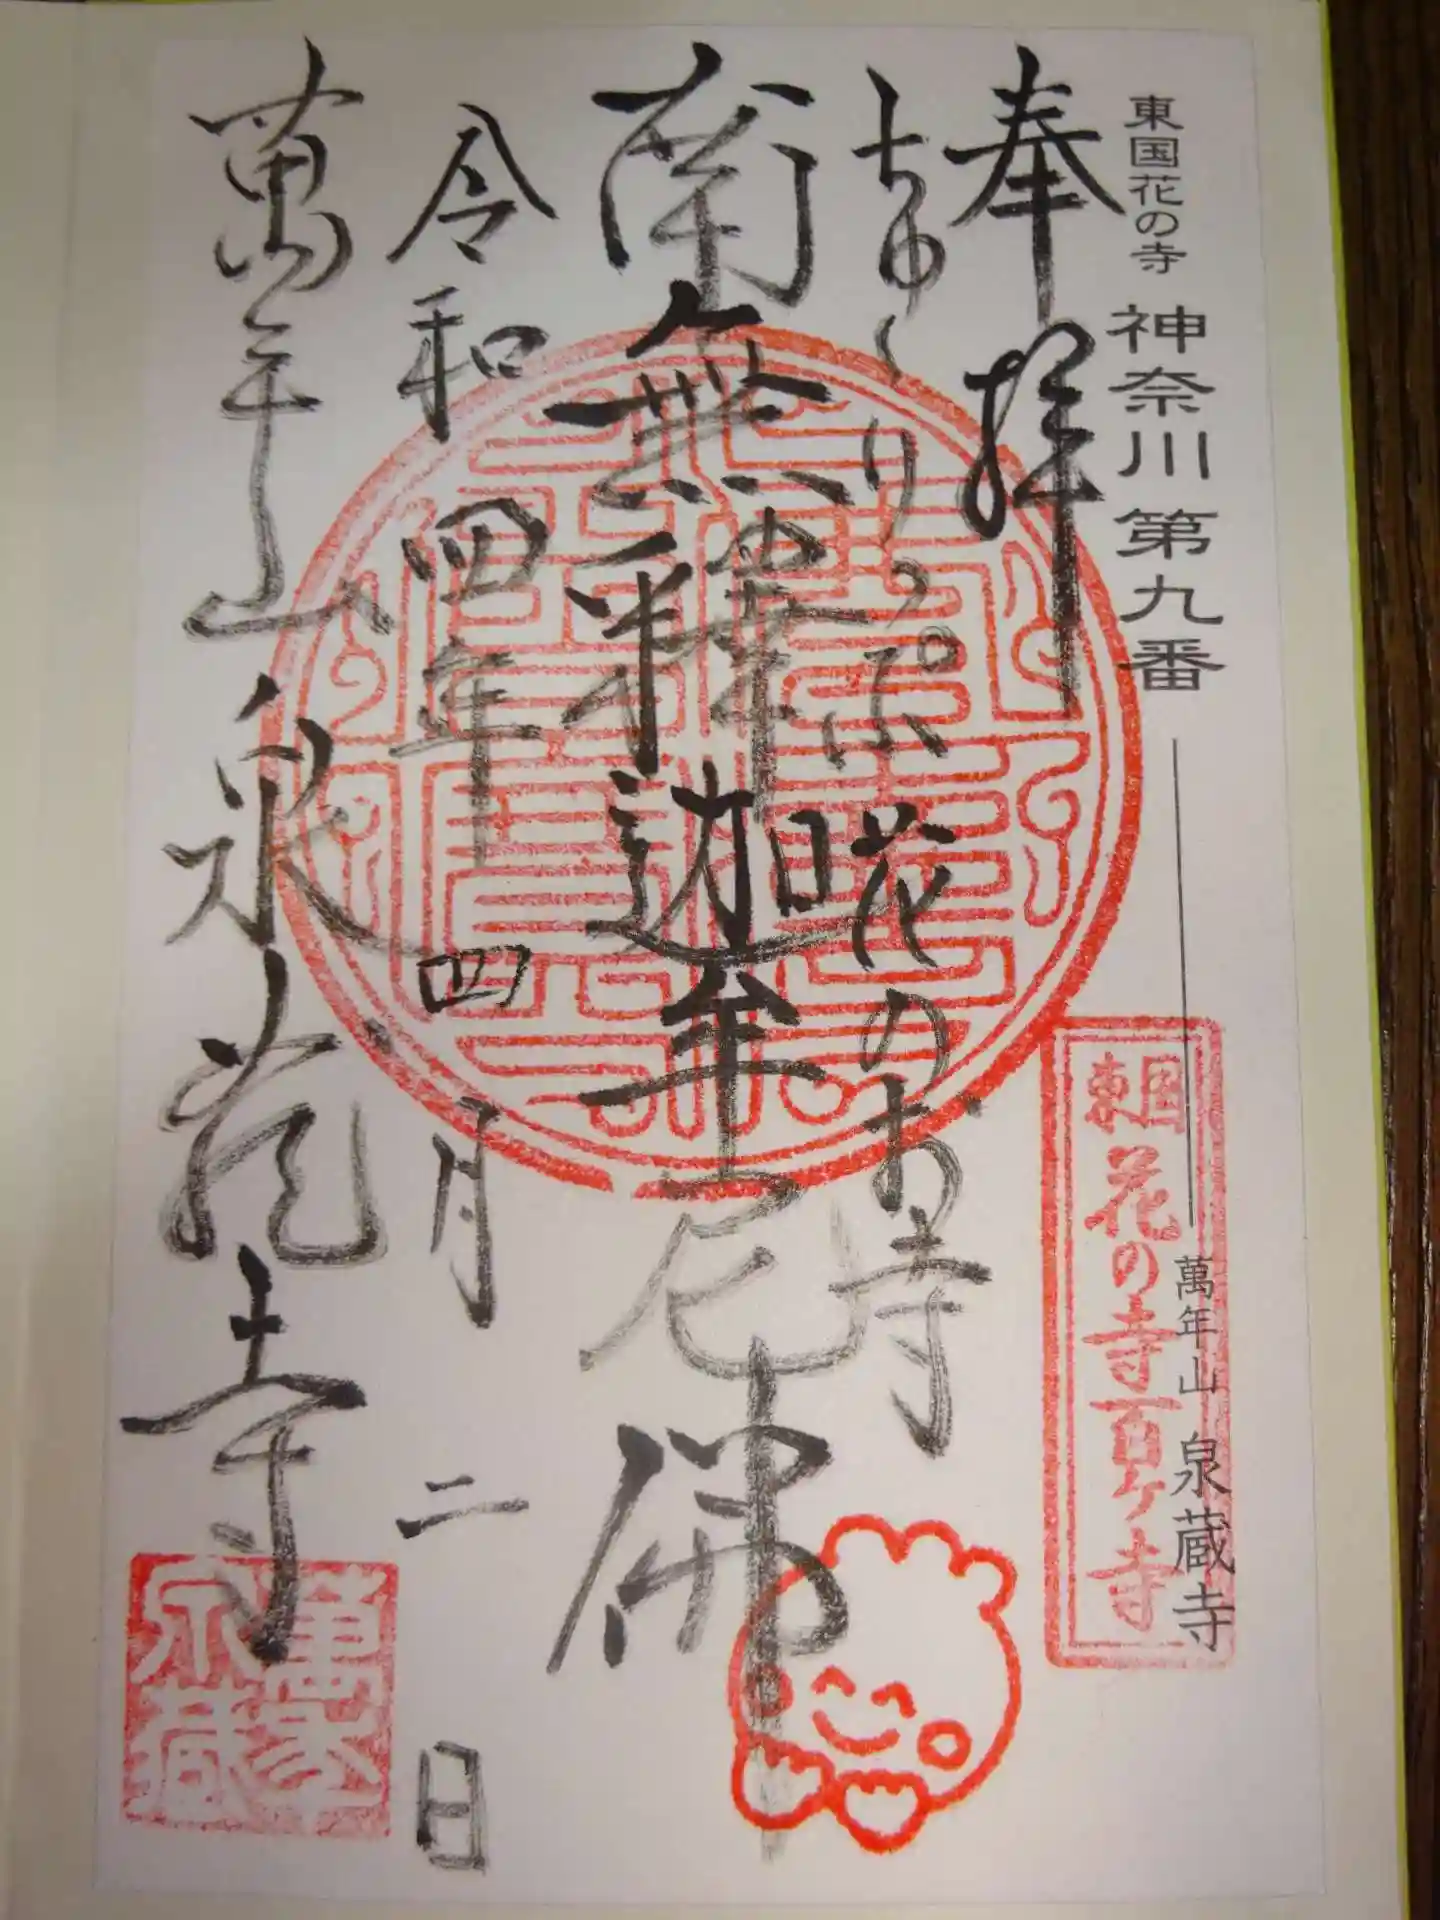 東国花の寺 神奈川第九番 萬年山 泉蔵寺
奉拝
東国花の寺百ヶ寺
ちゅーりっぷ 花のお寺
南無釋迦牟尼佛
令和四年四月二日
萬年山泉蔵寺